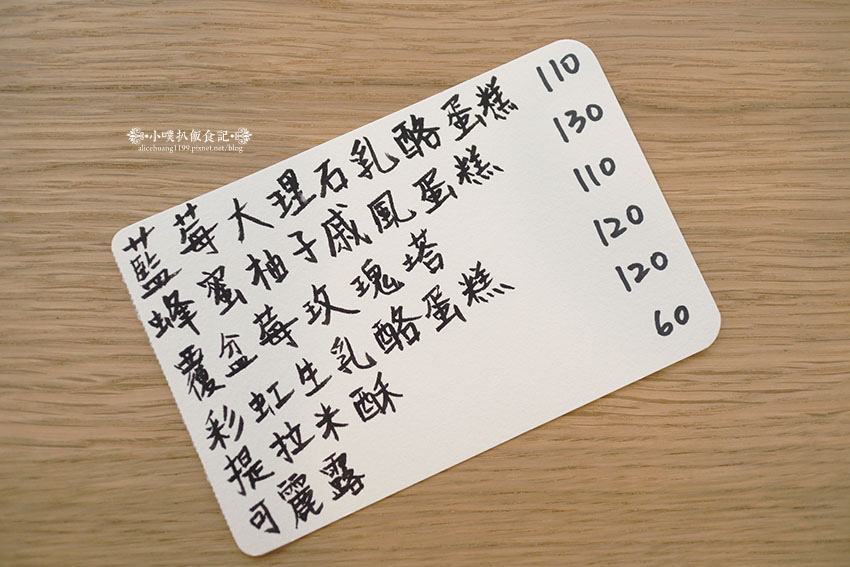 小噗趴飯食記
alicehuang1199.pixnet.net/blog
藍莓大理石乳酪蛋糕 110
蜂蜜柚子戚風蛋糕 130
覆盆莓玫瑰塔 110
彩虹生乳酪蛋糕 120
提拉米酥 120
可麗露 60